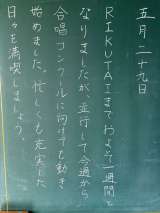 五月二十九日
RIKUTAIまであと一週間と
なりましたが並行して今週から
合唱コンクールに向けても動き
始めました。忙しくも充実した
日々を満喫しましょう。